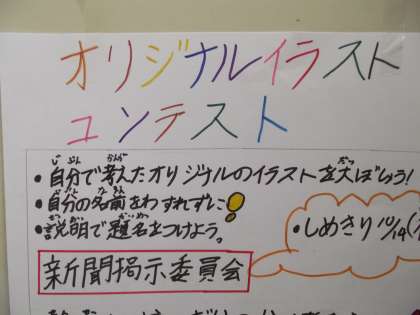 オリジナルイラスト
コンテスト
・自分で考えたオリジナルのイラストを大ぼしゅう!
・自分の名前をわすれずに!
・説明で題名をつけよう。
・しめきり10/14(
新聞掲示委員会